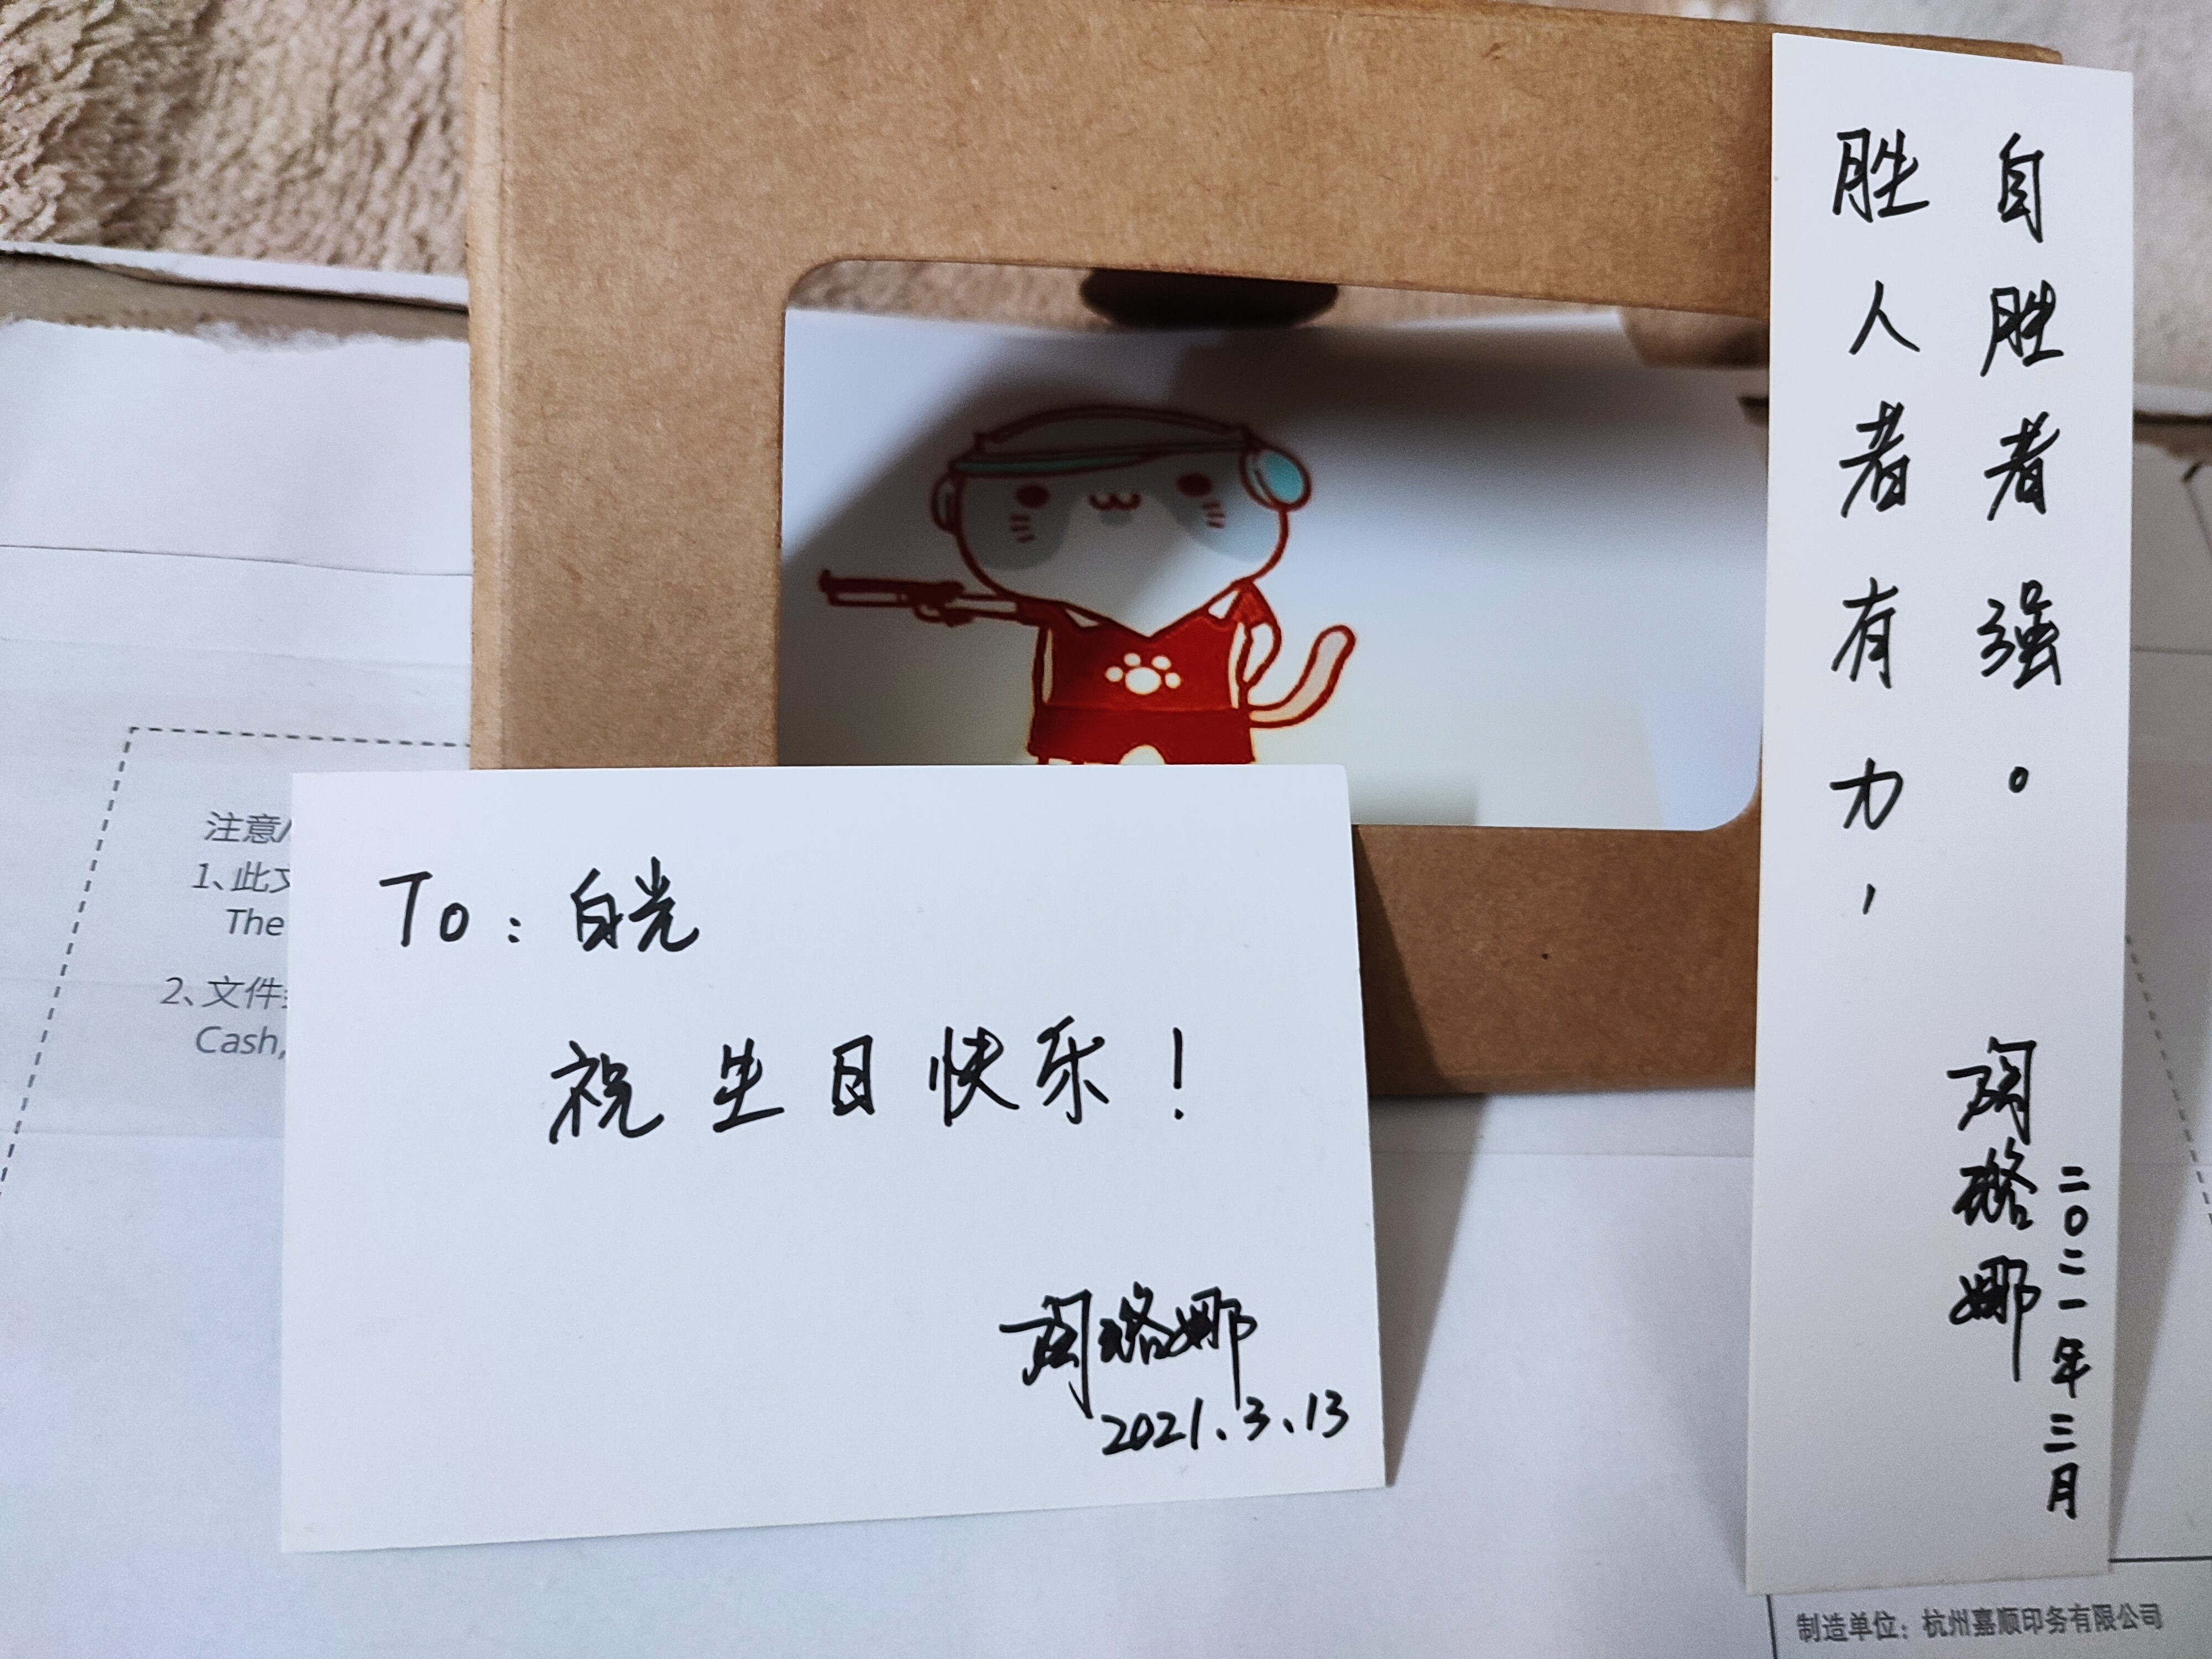 胜人者有力，
自胜者强。
陶璐娜
二〇二一年三月
To：白光
祝生日快乐！
陶璐娜
2021.3.13
注意/
1、此文
The
2、文件
Cash,
制造单位：杭州嘉顺印务有限公司